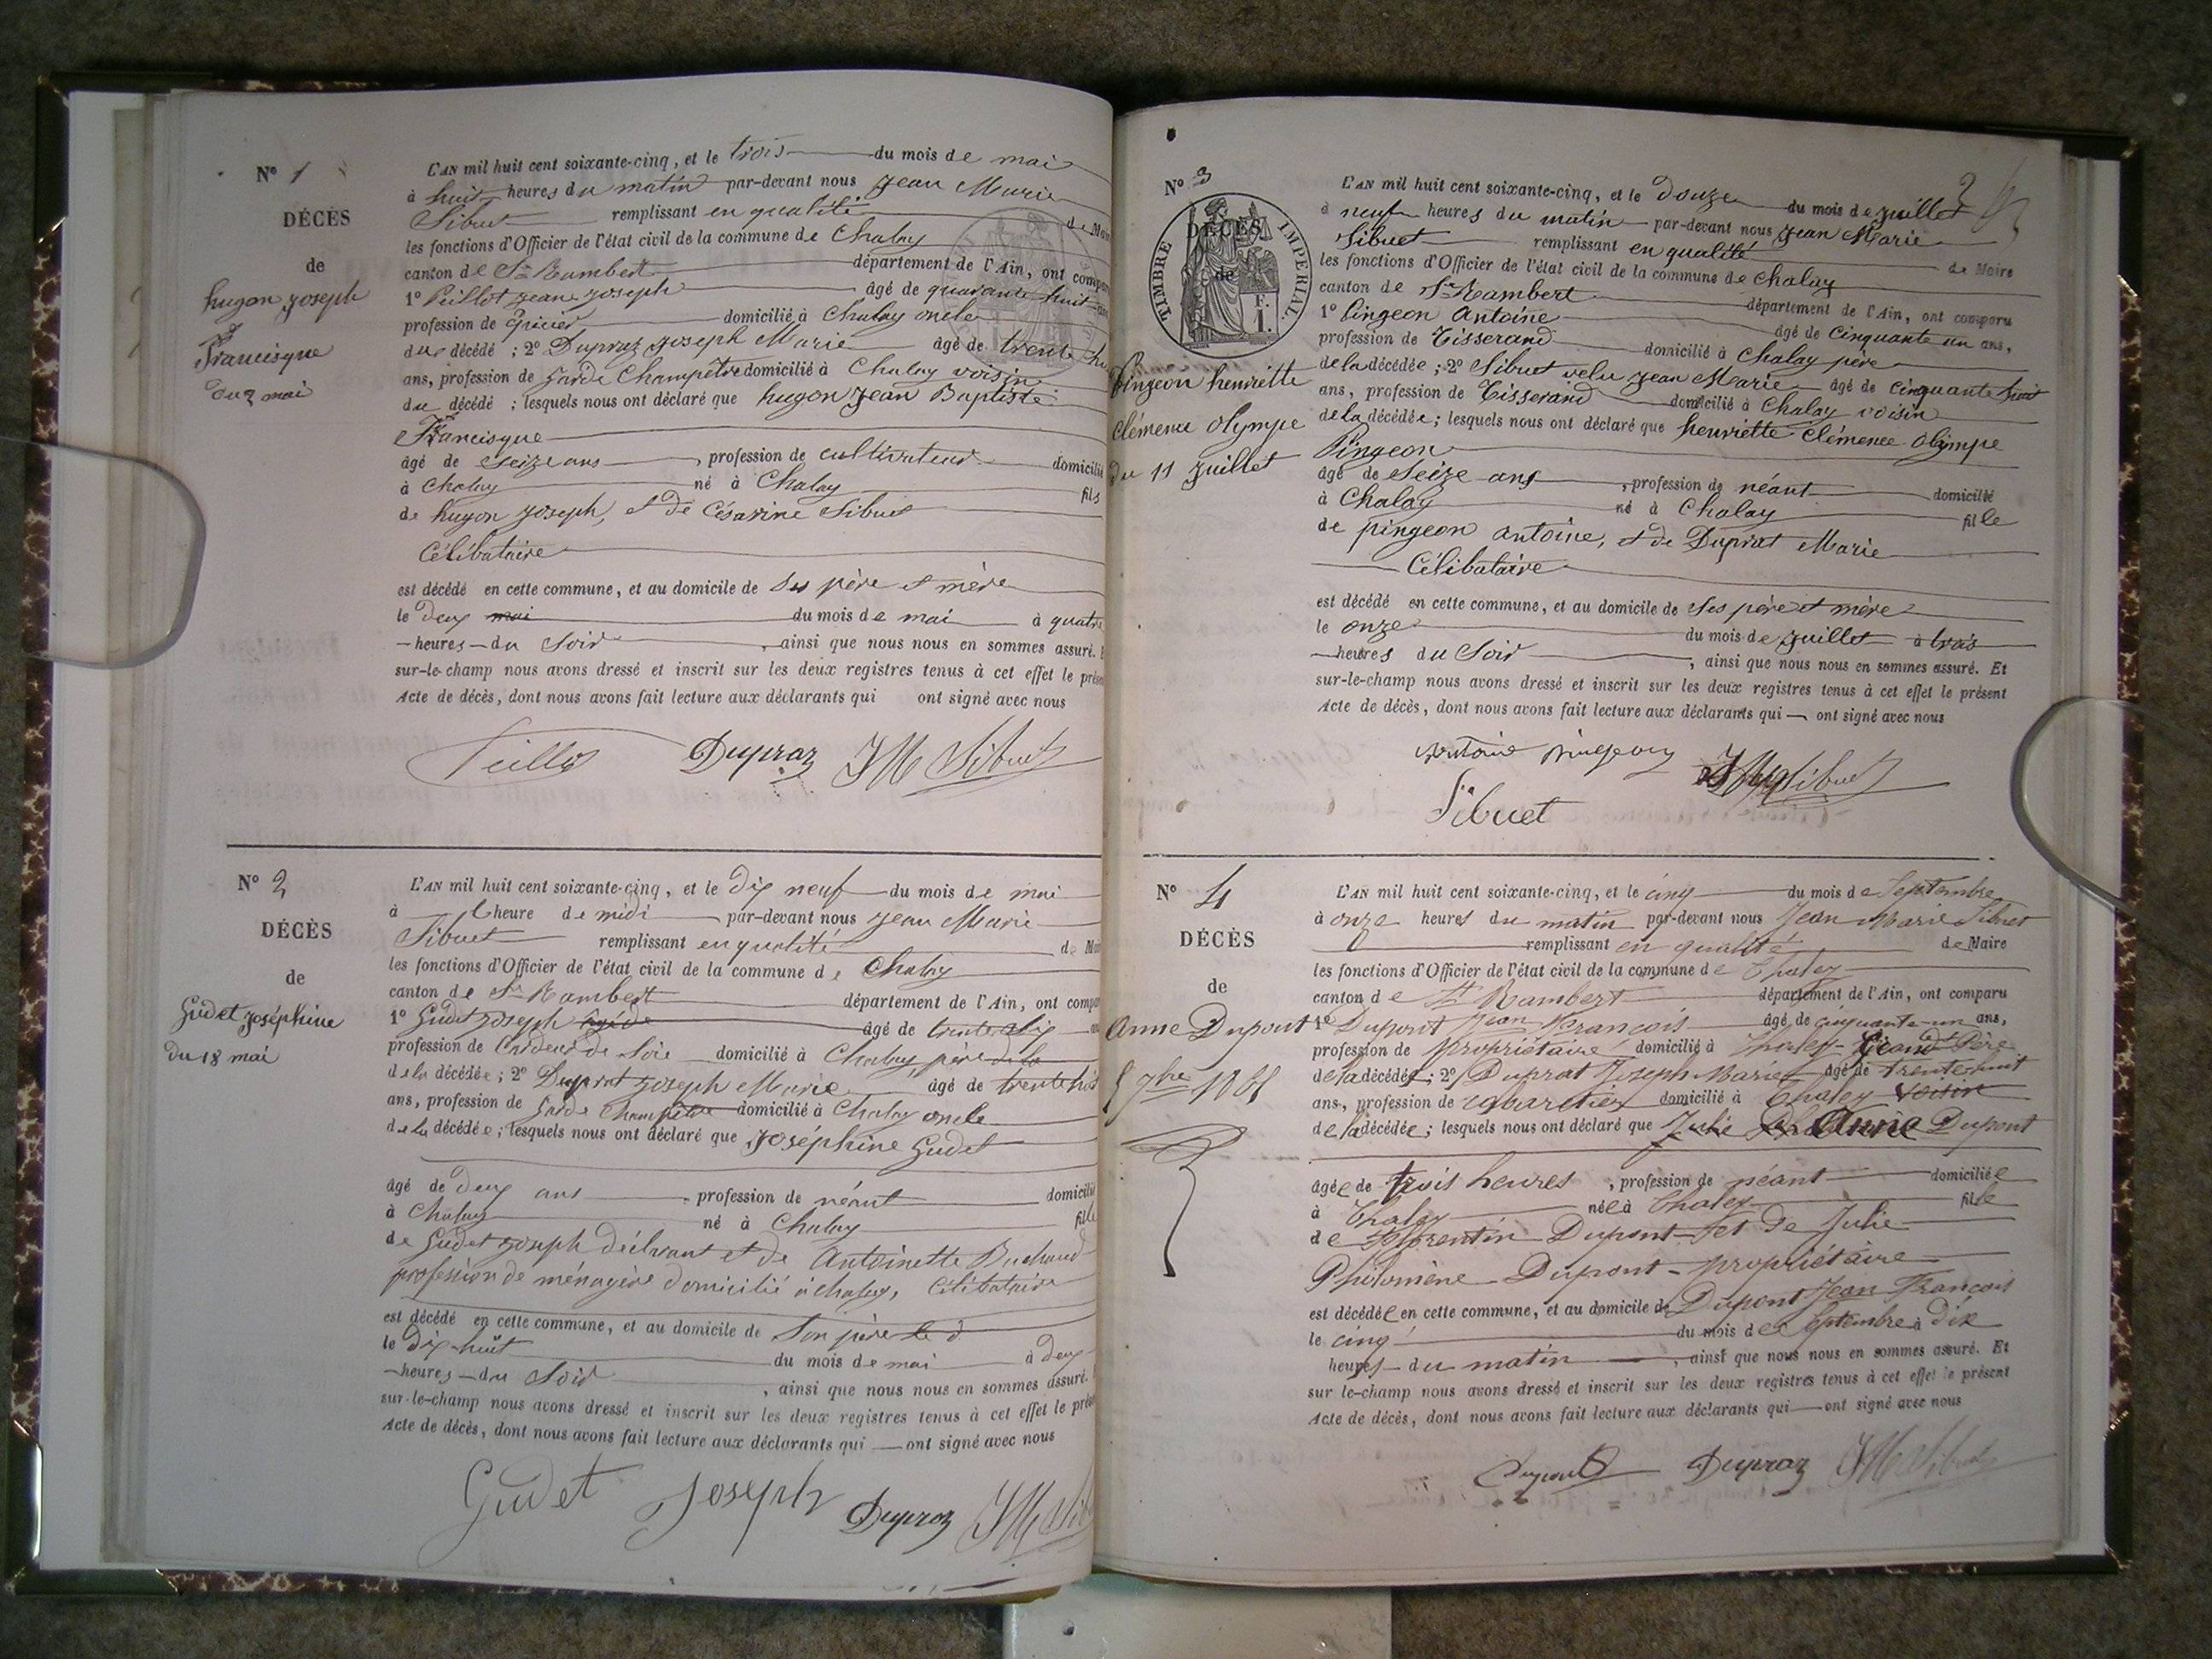 N° 1
DÉCÈS
de
hugon joseph
Francisque
du 2 mai
L'AN mil huit cent soixante-cinq, et le trois du mois de mai
à huit heures du matin par-devant nous Jean Marie
Sibuet remplissant en qualité de Mair
les fonctions d'Officier de l'état civil de la commune de Chaley
canton de St Rambert département de l'Ain, ont compar
1° Peillot jean joseph âgé de quarante huit ans
profession de épicier domicilié à Chaley oncle
du décédé ; 2° Dupraz joseph Marie âgé de trente hu
ans, profession de garde Champêtre domicilié à Chaley voisin
du décédé ; lesquels nous ont déclaré que hugon jean Baptiste
Francisque
âgé de seize ans , profession de cultivateur domicilié
à Chaley né à Chaley fils
de hugon joseph, et de Césarine Sibuet
Célibataire
est décédé en cette commune, et au domicile de ses père et mère
le deux mai du mois de mai à quatre
heures du soir , ainsi que nous nous en sommes assuré. E
sur-le-champ nous avons dressé et inscrit sur les deux registres tenus à cet effet le présen
Acte de décès, dont nous avons fait lecture aux déclarants qui ont signé avec nous
Peillot Dupraz JM Sibuet
N° 2
DÉCÈS
de
Gudet joséphine
du 18 mai
L'AN mil huit cent soixante-cinq, et le dix neuf du mois de mai
à l'heure de midi par-devant nous jean Marie
Sibuet remplissant en qualité de Mai
les fonctions d'Officier de l'état civil de la commune de Chaley
canton de St Rambert département de l'Ain, ont compa
1° Gudet joseph âgé de âgé de trente six an
profession de Cardeur de soie domicilié à Chaley, père de la
de la décédée ; 2° Duprat joseph Marie âgé de trente huit
ans, profession de garde champêtre domicilié à Chaley oncle
de la décédée ; lesquels nous ont déclaré que joséphine Gudet
âgé de deux ans , profession de néant domicilié
à Chaley né à Chaley fille
de Gudet joseph déclarant et de Antoinette Buchaud
profession de ménagère domicilié à chaley, Célibataire
est décédé en cette commune, et au domicile de son père le d
le dix huit du mois de mai à deux
heures du soir , ainsi que nous nous en sommes assuré.
sur-le-champ nous avons dressé et inscrit sur les deux registres tenus à cet effet le prése
Acte de décès, dont nous avons fait lecture aux déclarants qui ont signé avec nous
Gudet Joseph Dupraz JM Sib
2
N° 3
DÉCÈS
de
TIMBRE IMPERIAL
F. I.
Pingeon henriette
Clémence Olympe
du 11 juillet
L'AN mil huit cent soixante-cinq, et le douze du mois de juillet
à neuf heures du matin par-devant nous Jean Marie
Sibuet remplissant en qualité de Maire
les fonctions d'Officier de l'état civil de la commune de Chaley
canton de St Rambert département de l'Ain, ont comparu
1° Pingeon Antoine âgé de cinquante un ans,
profession de Tisserand domicilié à Chaley père
de la décédée ; 2° Sibuet velu jean Marie âgé de cinquante huit
ans, profession de Tisserand domicilié à Chaley voisin
de la décédée ; lesquels nous ont déclaré que henriette Clémence Olimpe
Pingeon
âgé de Seize ans , profession de néant domicilié
à Chaley né à Chaley fille
de pingeon antoine, et de Duprat Marie
Célibataire
est décédé en cette commune, et au domicile de ses père et mère
le onze du mois de juillet à trois
heures du soir , ainsi que nous nous en sommes assuré. Et
sur-le-champ nous avons dressé et inscrit sur les deux registres tenus à cet effet le présent
Acte de décès, dont nous avons fait lecture aux déclarants qui ont signé avec nous
Antoine pingeon JM Sibuet
Sibuet
N° 4
DÉCÈS
de
Anne Dupont
5 7bre 1865
L'AN mil huit cent soixante-cinq, et le cinq du mois de Septembre
à onze heures du matin par-devant nous Jean Marie Sibuet
remplissant en qualité de Maire
les fonctions d'Officier de l'état civil de la commune de Chaley
canton de St Rambert département de l'Ain, ont comparu
1° Dupont Jean François âgé de cinquante-un ans,
profession de propriétaire domicilié à Chaley Grand Père
de la décédée ; 2° Duprat Joseph Marie âgé de trente huit
ans, profession de cabaretier domicilié à Chaley voisin
de la décédée ; lesquels nous ont déclaré que Julie Anne Dupont
âgée de trois heures , profession de néant domiciliée
à Chaley née à Chaley fille
de Florentin Dupont et de Julie
Philomène Dupont propriétaire
est décédée en cette commune, et au domicile de Dupont Jean François
le cinq du mois de Septembre à dix
heures du matin , ainsi que nous nous en sommes assuré. Et
sur le-champ nous avons dressé et inscrit sur les deux registres tenus à cet effet le présent
Acte de décès, dont nous avons fait lecture aux déclarants qui ont signé avec nous
Dupont Dupraz JM Sibuet